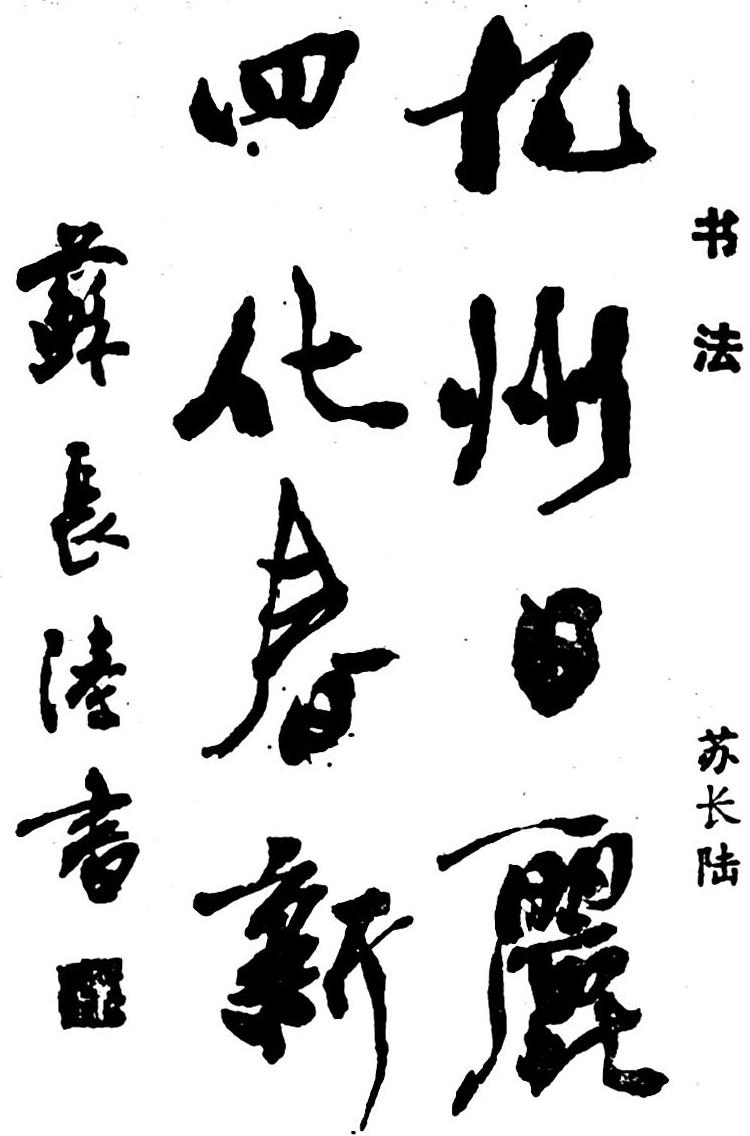 书法
苏长陆
州日麗
四化春新
蘇長陸書